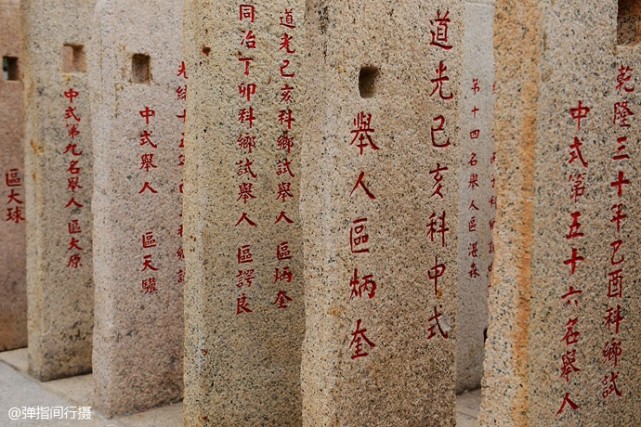 區大球
中式第九名舉人 區大原
中式舉人 區天驥
同治丁卯科鄉試舉人 區諤良
道光己亥科鄉試舉人 區炳奎
道光己亥科中式
舉人區炳奎
第十四名舉人區湛森
乾隆三十年乙酉科鄉試
中式第五十六名舉人
@弹指间行摄